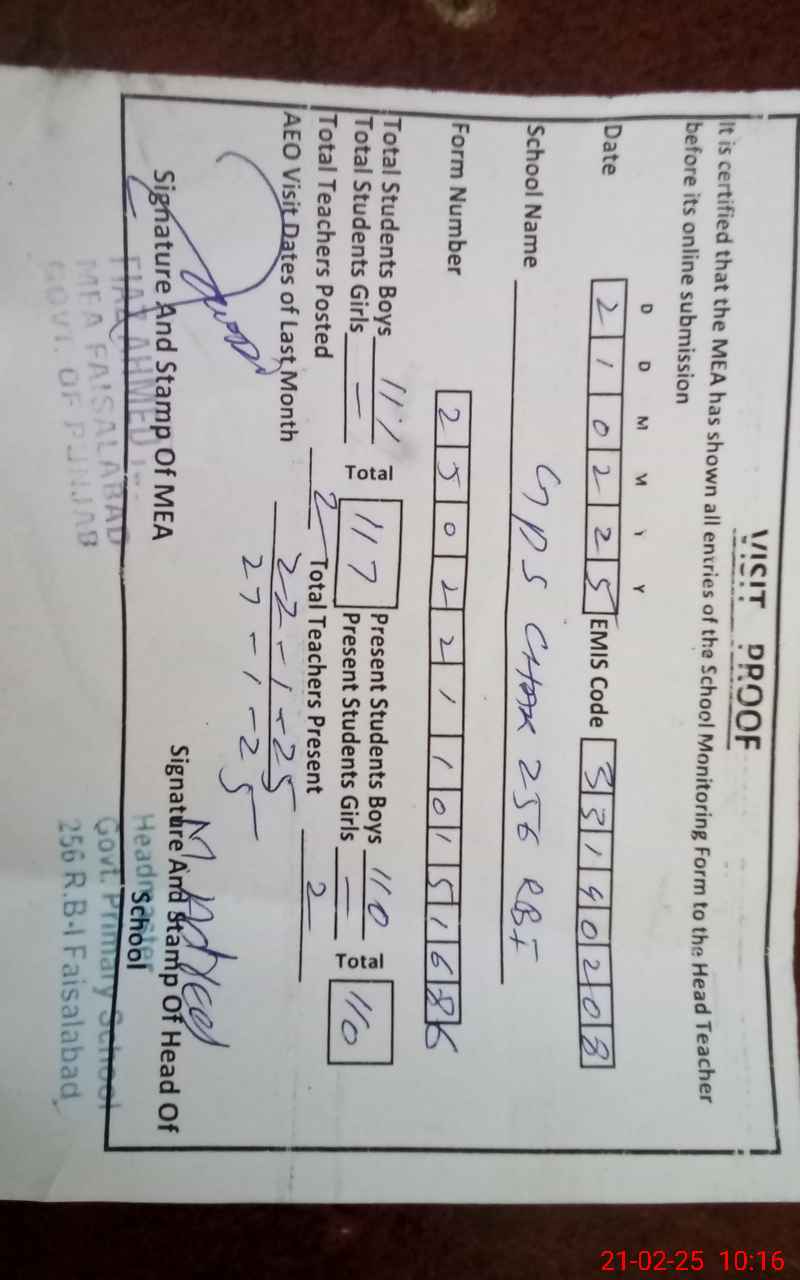 VISIT PROOF
It is certified that the MEA has shown all entries of the School Monitoring Form to the Head Teacher
before its online submission
D D M M Y Y
Date 2 1 0 2 2 5 EMIS Code 3 3 1 9 0 2 0 8
School Name GPS CHAK 256 RBI
Form Number 2 5 0 2 2 1 1 0 1 5 1 6
Total Students Boys 117 Total 117 Present Students Boys 110 Total 110
Total Students Girls — Present Students Girls —
Total Teachers Posted 2 Total Teachers Present 2
AEO Visit Dates of Last Month 22-1-25
27-1-25
Signature And Stamp Of MEA
FIAZ AHMED
MEA FAISALABAD
GOVT. OF PUNJAB
Signature And Stamp Of Head Of
School
Headmaster
Govt. Primary School
256 R.B-I Faisalabad
21-02-25 10:16